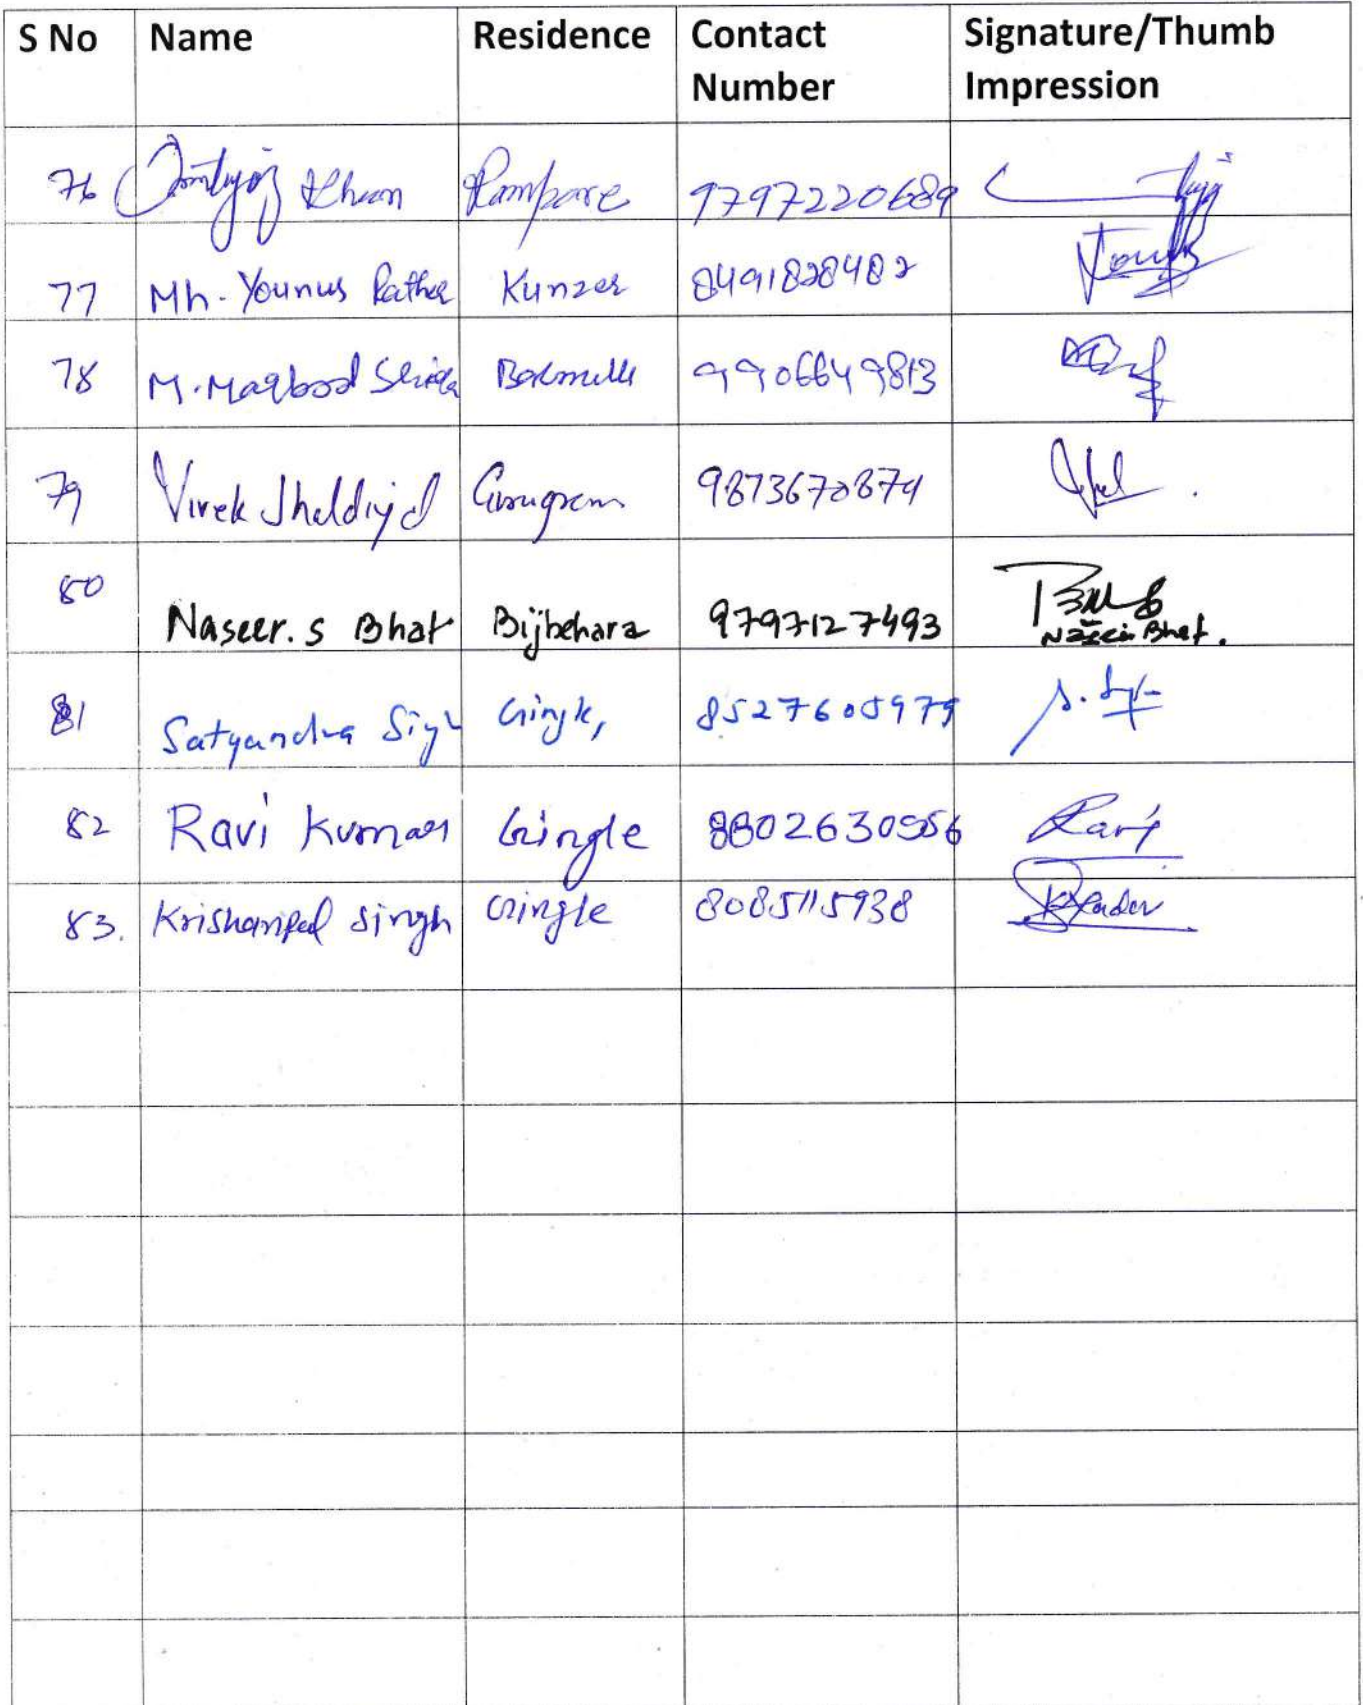 S No Name Residence Contact Number Signature/Thumb Impression
76 Imtiyaz Khan Rampore 9797220689
77 Mh. Younus Rather Kunzer 8491828482 Younus
78 M. Maqbool 9906649813
79 Vivek Gurugram
80 Naseer. S Bhat Bijbehara 9797127493
Naseer Bhat.
81 Satyandra Sigh Gingle, 8527605979
82 Ravi Kumar Gingle 8802630556 Ravi
83. Krishanpal Singh Gingle 8085115938